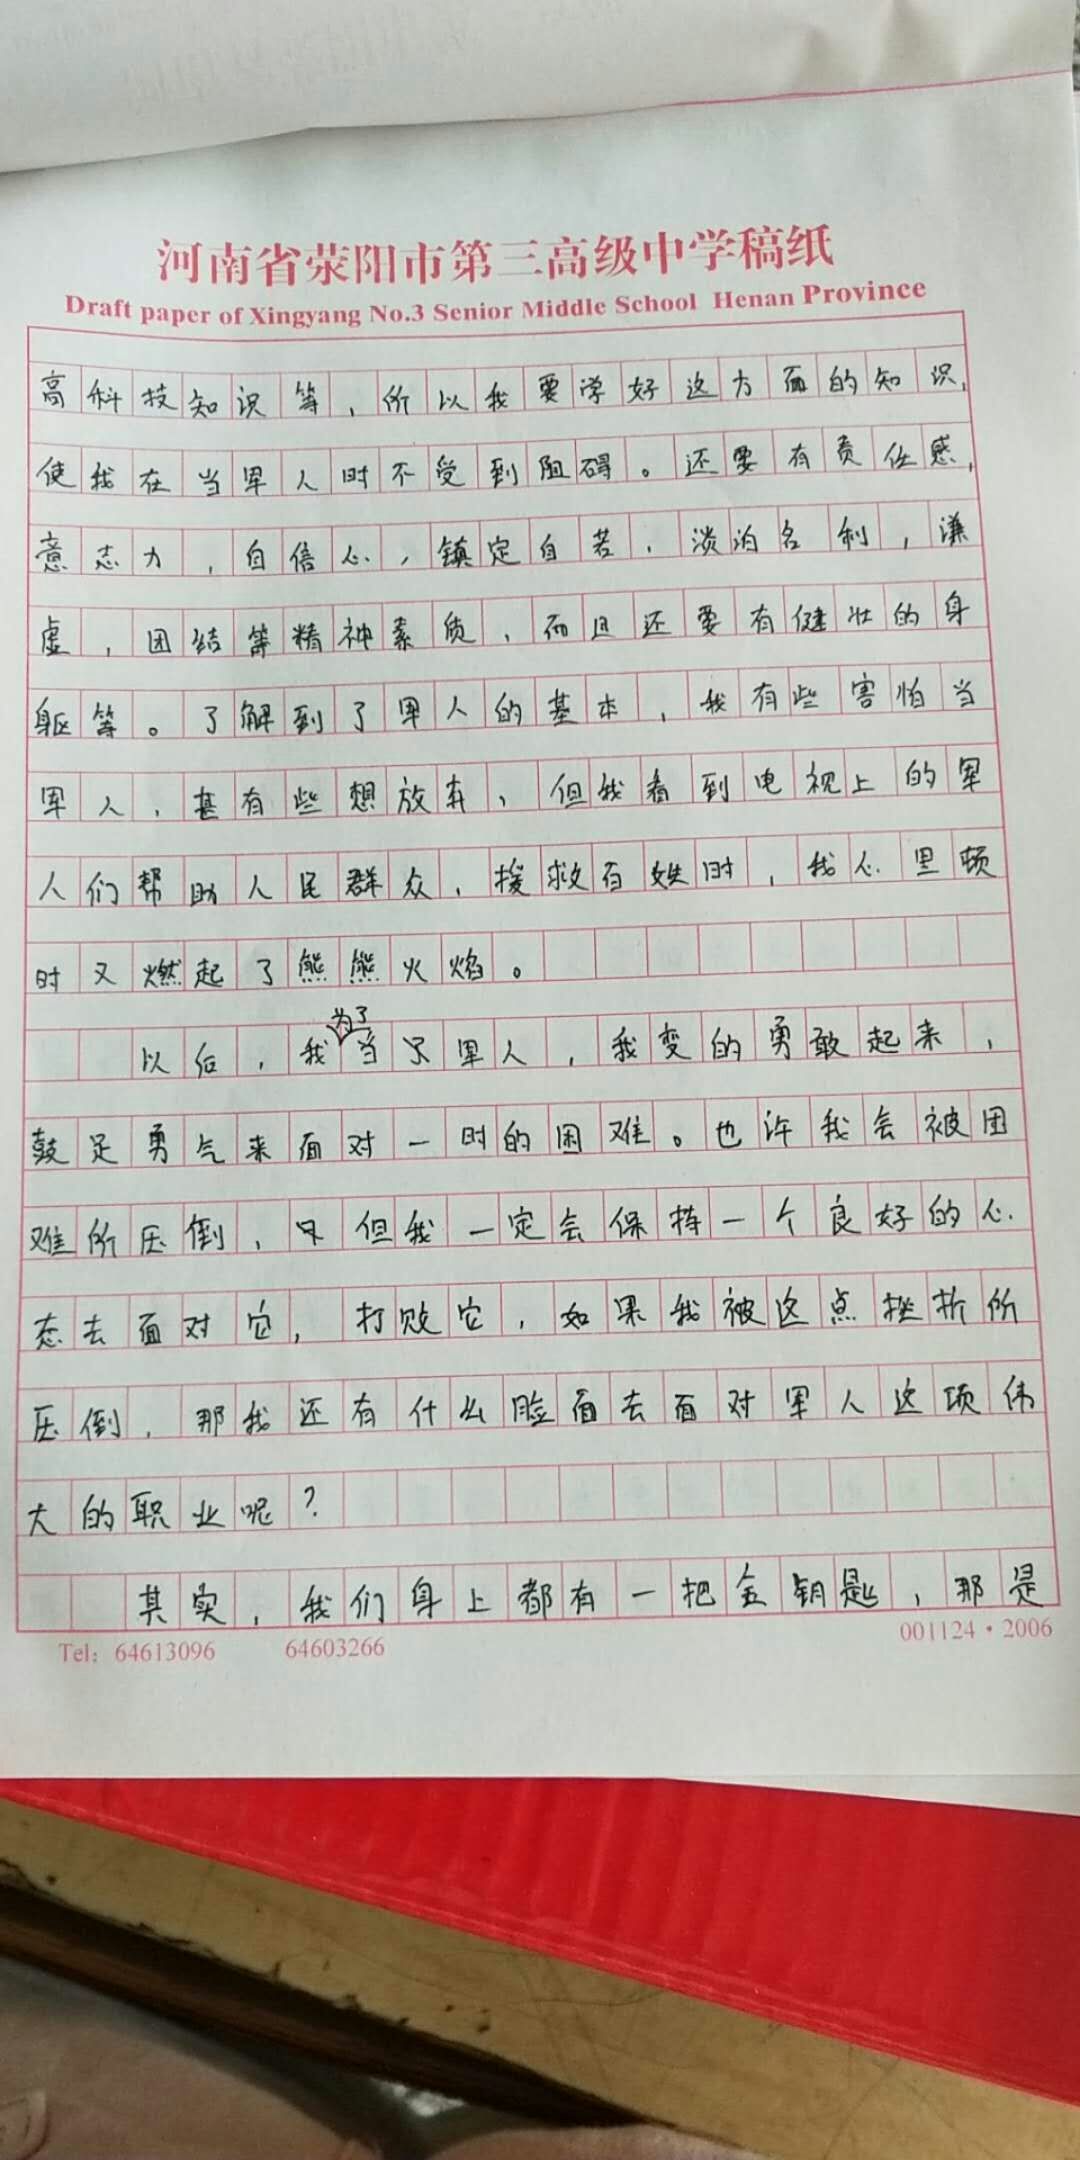 河南省荥阳市第三高级中学稿纸
Draft paper of Xingyang No.3 Senior Middle School Henan Province
高科技知识等，所以我要学好这方面的知识，
使我在当军人时不受到阻碍。还要有责任感，
意志力，自信心，镇定自若，淡泊名利，谦
虚，团结等精神素质，而且还要有健壮的身
躯等。了解到了军人的基本，我有些害怕当
军人，甚有些想放弃，但我看到电视上的军
人们帮助人民群众，援救百姓时，我心里顿
时又燃起了熊熊火焰。
以后，我为了当军人，我变的勇敢起来，
鼓足勇气来面对一时的困难。也许我会被困
难所压倒，但我一定会保持一个良好的心
态去面对它，打败它，如果我被这点挫折所
压倒，那我还有什么脸面去面对军人这项伟
大的职业呢？
其实，我们身上都有一把金钥匙，那是
Tel: 64613096 64603266 001124·2006